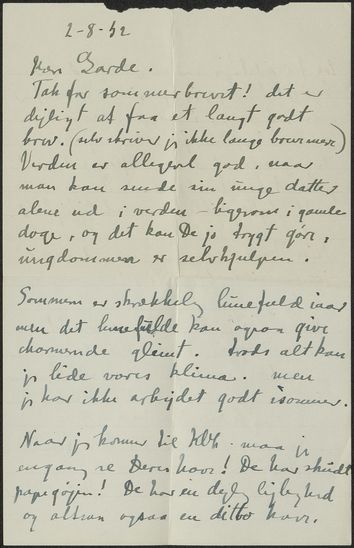 2-8-52
Kære Garde.
Tak for sommerbrevet! det er
dejligt at faa et langt godt
brev. (selv skriver jeg ikke lange breve mere)
Verden er allegevel god, naar
man kan sende sin unge datter
alene ud i verden – ligesom i gamle
dage, og det kan De jo trygt gøre,
ungdommen er selvhjulpen.
Sommeren er skrækkelig lunefuld iaar
men det lunefulde kan ogsaa give
charmerende glimt. trods alt kan
jeg lide vores klima. men
jeg har ikke arbejdet godt isommer.
Naar jeg kommer til Kbh. maa jeg
engang se Deres have! De har skudt
papegøjen! De har en dejlig lejlighed
og altsaa ogsaa en ditto have.